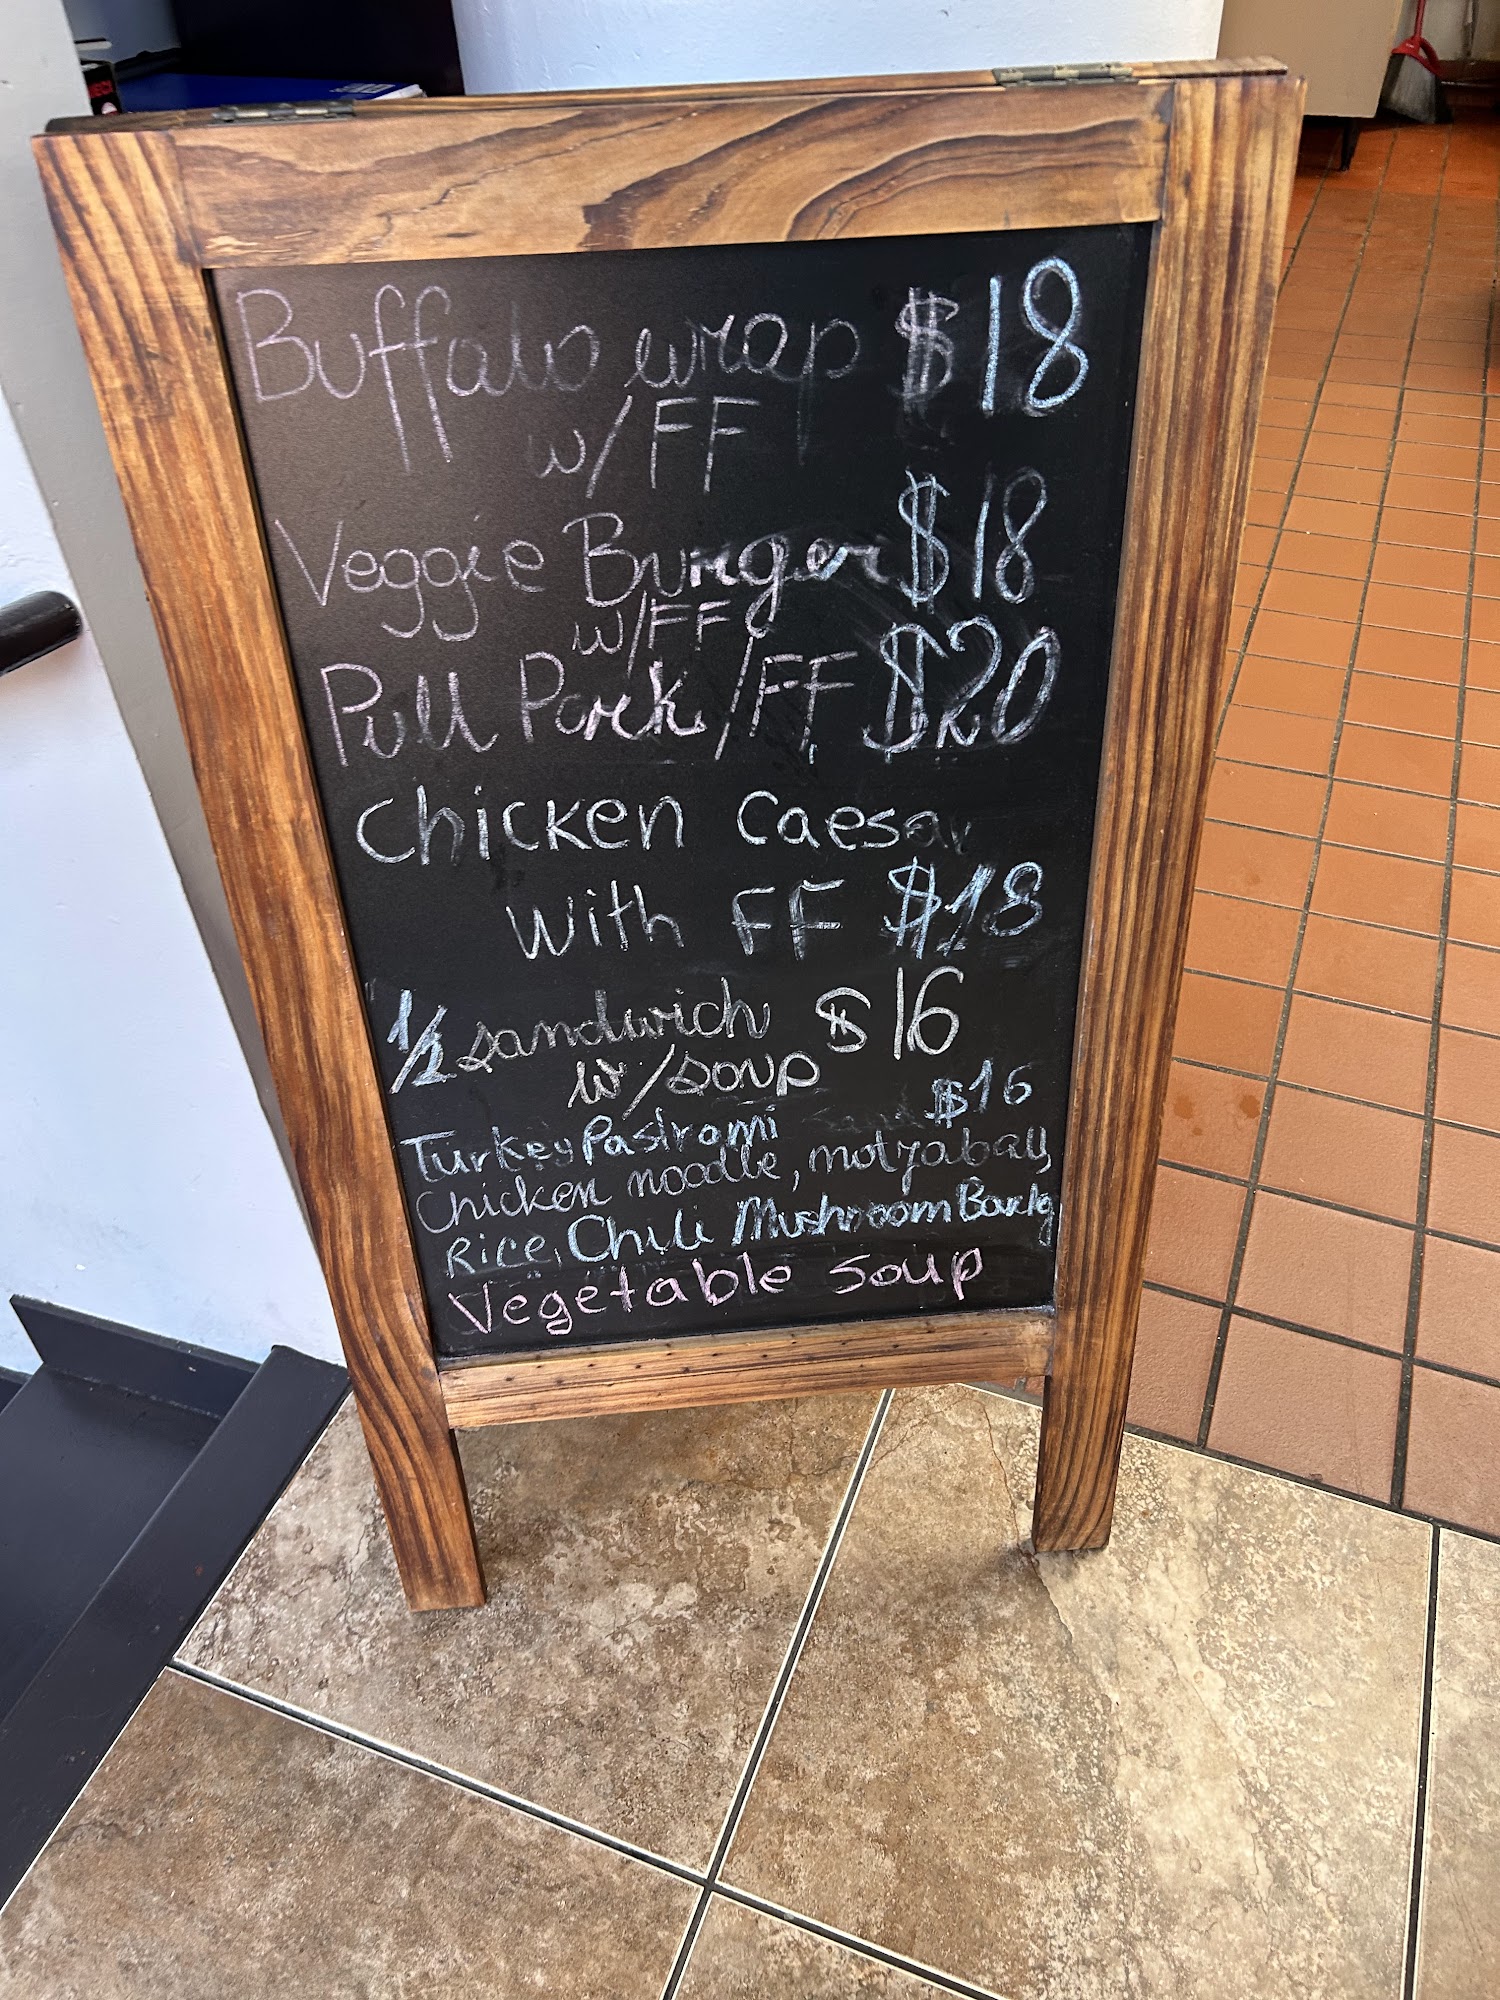 Buffalo wrap $18
w/FF
Veggie Burger $18
w/FF
Pull Pork/FF $20
Chicken Caesar
with FF $18
1/2 sandwich $16
w/soup
Turkey Pastromi $16
Chicken noodle, motzaball,
Rice, Chili Mushroom Barly
Vegetable Soup